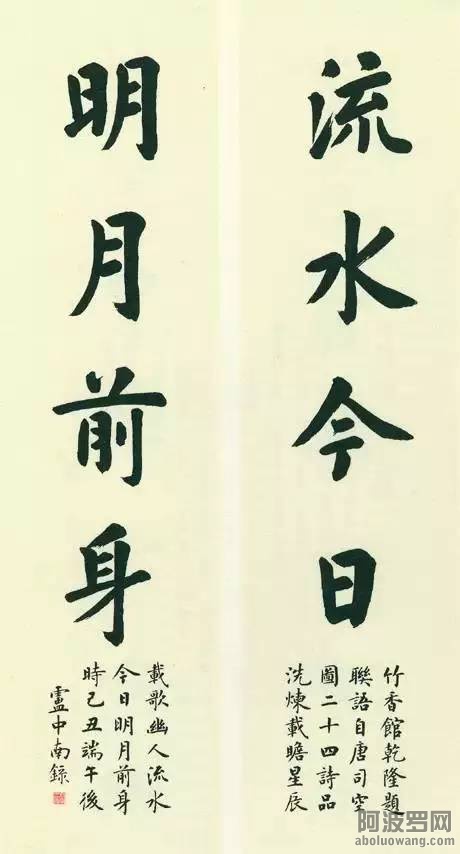 流水今日
竹香館乾隆題
聯語自唐司空
圖二十四詩品
洗煉載瞻星辰
明月前身
載歌幽人流水
今日明月前身
時己丑端午後
盧中南錄
阿波罗网
aboluowang.com